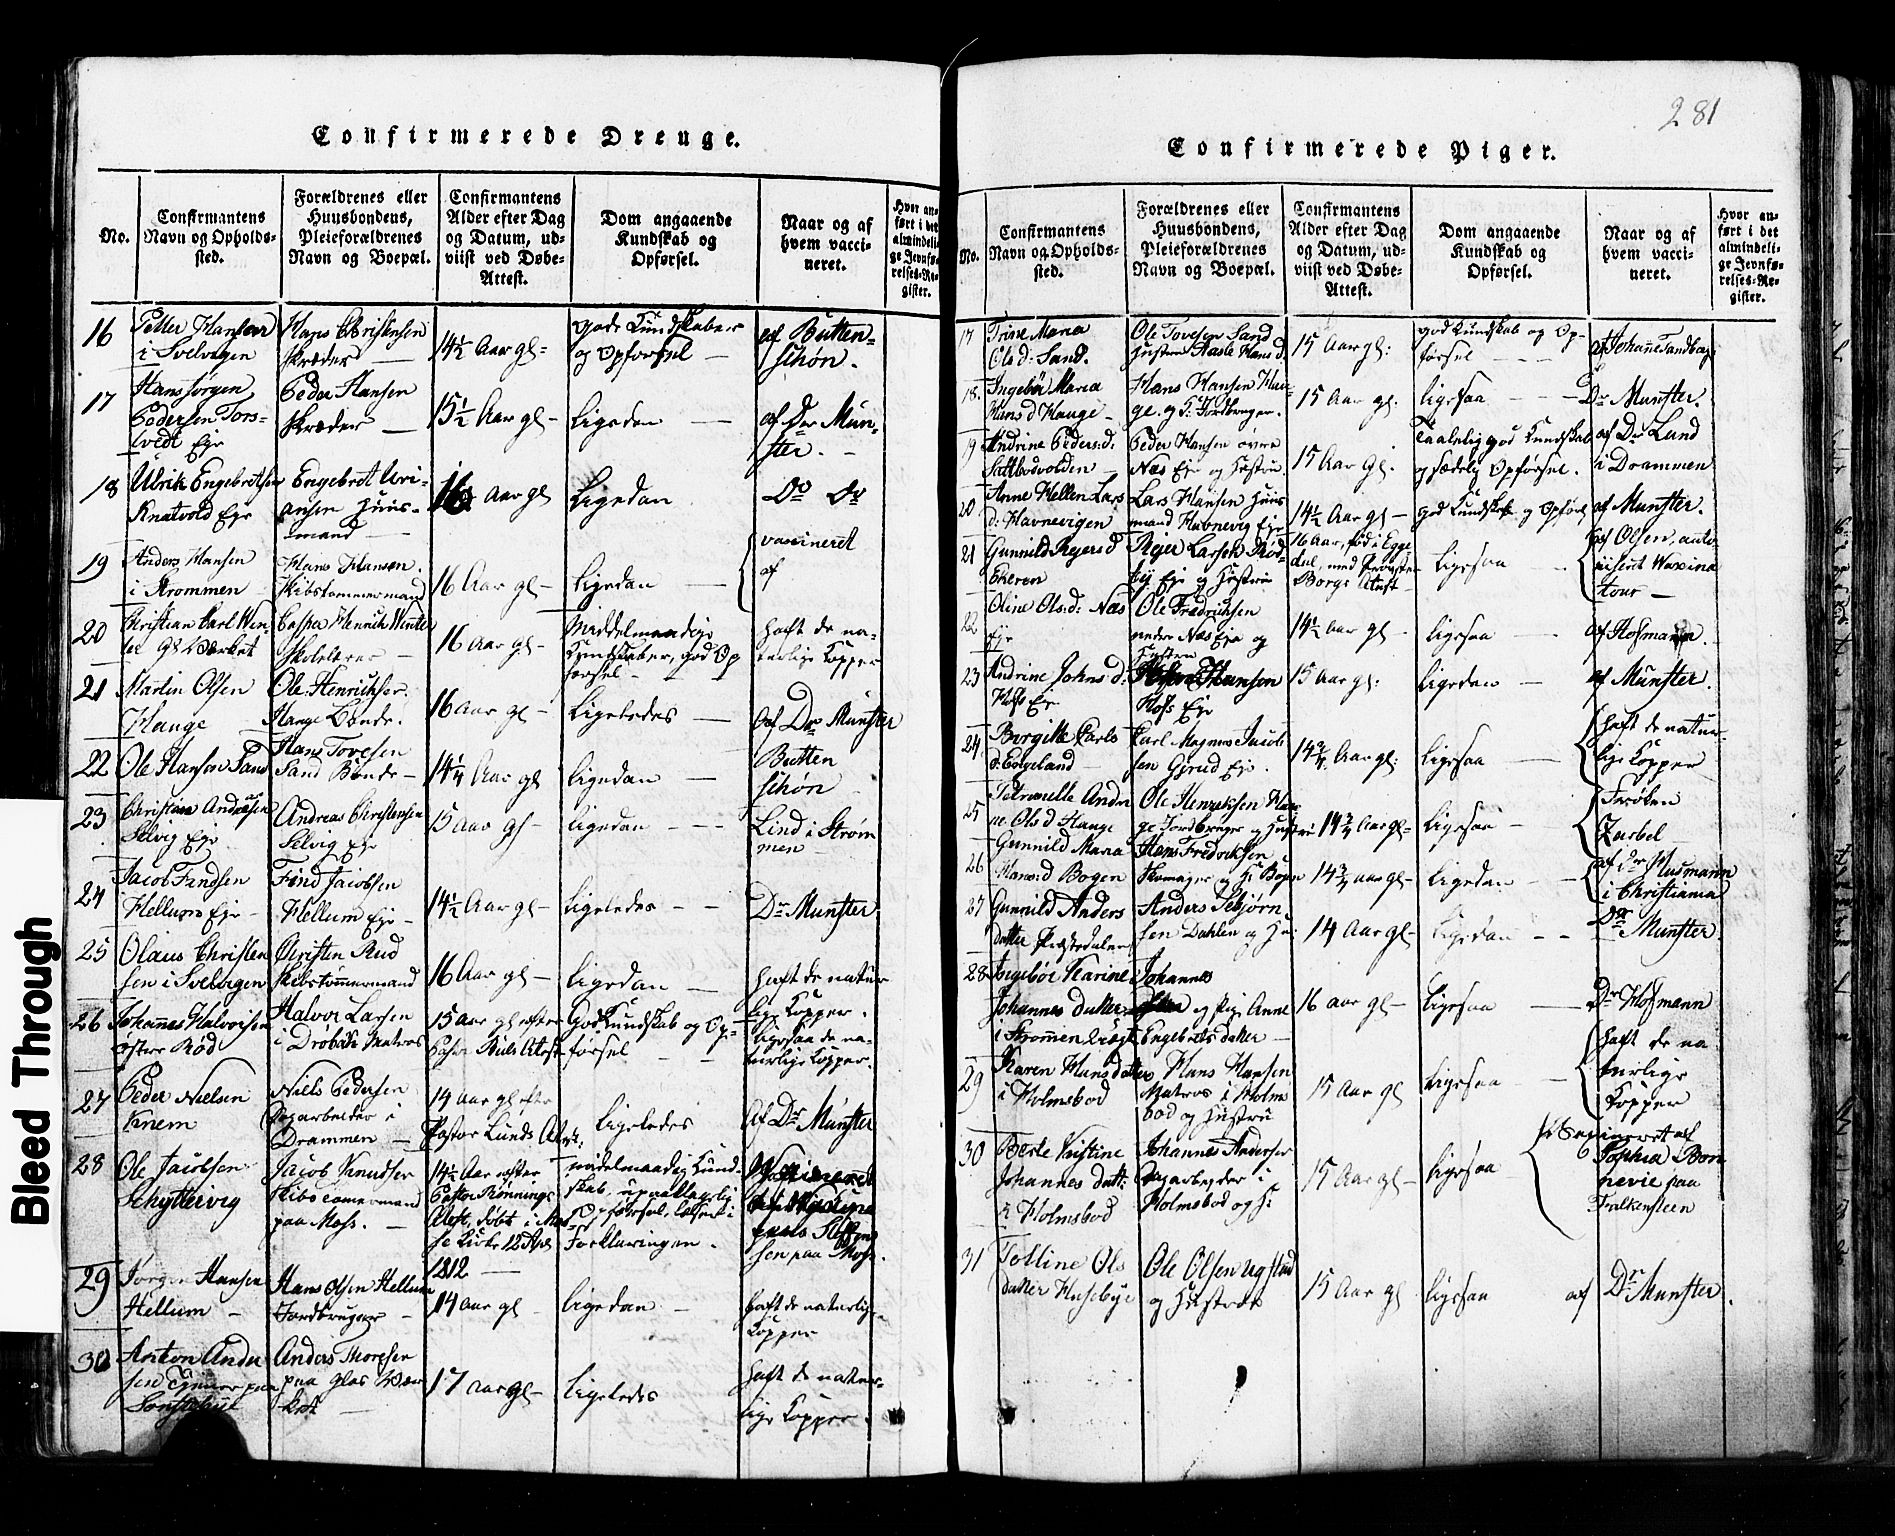 281
Confirmerede Drenge.
No.
Confirmantens
Navn og Opholds-
sted.
Forældrenes eller
Huusbondens,
Pleieforældrenes
Navn og Boepæl.
Confirmantens
Alder efter Dag
og Datum, ud-
viist ved Døbe-
Attest.
Dom angaaende
Kundskab og
Opførsel.
Naar og af
hvem vacci-
neret.
Hvor an-
ført i det
almindeli-
ge Jevnfø-
relses-Re-
gister.
16
Petter Hansen
i Svelvigen
Hans Christensen
Skræder —
14½ Aar gl-
gode Kundskaber
og Opførsel —
af Butten-
schøn.
17
Hans Jørgen
Pedersen Tors-
tvedt Eje
Peder Hansen
Skræder —
15½ Aar gl-
Ligedan —
af Dr Mün-
ster. -
18
Ulrik Engebretsen
Knatvold Eje
Engebret Uri-
ansen Huus-
mand —
16 Aar gl
Ligedan
Do Do
19
Anders Hansen
i Strømmen
Hans Hansen
Skibstømmermand
16 Aar gl-
Ligedan —
vaccineret
af
20
Christian Carl Win-
ter Gl Værket
Casper Henrich Winter
Skolelærer —
16 Aar gl-
Middelmaadige
Kundskaber, god Op
førsel —
haft de na-
turlige Kopper
21
Martin Olsen
Hauge
Ole Henriksen
Hauge Bonde.
16 Aar gl-
Ligeledes —
af Dr Munster
22
Ole Hansen Sand
Hans Tovesen
Sand Bonde -
14¼ Aar gl
ligedan —
Butten
schøn
23
Christian Andersen
Selvig Eje
Andreas Christensen
Selvig Eje
15 Aar gl-
ligedan - - -
Lind i Strøm
men
24
Jacob Findsen
Hellum Eje -
Find Jacobsen
Hellum Eje -
14½ Aar gl-
ligeledes - -
Dr Munster
25
Olaus Christen
sen i Svelvigen
Christen Rud
Skibstømmermand
16 Aar gl-
ligedan —
haft de natur
lige Kopper.
26
Johannes Halvorsen
østre Rød
Halvor Larsen
i Drøbak Matros
15 Aar gl efter
Pastor Attest
God Kundskab og Op-
førsel —
ligesaa de na-
turlige Kopper.
27
Peder Nielsen
Knem
Niels Pedersen
i
Drammen —
14 Aar gl efter
Pastor Lunds Attest
ligeledes
af Dr Münster
28
Ole Jacobsen
Schyttervig
Jacob Knudsen
Skibstømermand
paa Moss. —
14½ Aar efter
Pastor Rønnings
Attest, døbt i Mos-
se Kirke 12 Apr
1812 —
midelmaadig Kund-
skab, upaaklagelig
Opførsel, læser i
Forklaringen.
Steffen
sen paa Moss.
29
Jørgen Hansen
Hellum -
Hans Olsen Hellum
Jordbruger —
14 Aar gl-
ligedan —
haft de naturlig-
Kopper
30
Anton Ander
sen paa
Anders Thoresen
paa Glas Vær
ket —
17 Aar gl-
ligeledes
haft de natur-
lige Kopper.
Confirmerede Piger.
No.
Confirmantens
Navn og Opholds-
sted.
Forældrenes eller
Huusbondens,
Pleieforældrenes
Navn og Boepæl.
Confirmantens
Alder efter Dag
og Datum, ud-
viist ved Døbe-
Attest.
Dom angaaende
Kundskab og
Opførsel.
Naar og af
hvem vacci-
neret.
Hvor an-
ført i det
almindeli-
ge Jevnfø-
relses-Re-
gister.
17
Trine Maria
Ols d: Sand.
Ole Tovesen Sand
Hustru Aasle Hans d.
15 Aar gl:
god Kundskab og Op-
førsel - - -
af Johanne Sandberg
18.
Ingebør Maria
Hans d Hauge -
Hans Hansen Hau-
ge. og H: Jordbruger.
15 Aar gl.
ligesaa - - -
Dr Munster.
19
Andrine Peders: d:
Peder Hansen øvre
Næs Eje og Hustru
15 Aar gl.
Taalelig god Kundskab
og sædelig Opførsel.
af Dr Lund
i Drammen
20
Anne Hellen Lars
d. Havnevigen
Lars Hansen Huus
mand Habnevig Eje
14½ Aar gl -
god Kundskab og Opførs
af Munster.
21
Gunnild Rejers d
Ekeren
Rejer Larsen Rød-
Eje og Hustru
16 Aar, fød i Egge
dal, med Provsten
Borgs Attest -
ligesaa
af Olsen, auto
riseret Waxina
tour —
22
Oline Ols: d: Næs
Eje
Ole Fredriksen
nedre Næs Eje og
Hustru
14½ Aar gl -
ligesaa
af Hofmann.
23
Andrine Johns d:
Hofs Eje
Hansen
Hofs Eje
15 Aar gl:
ligedan —
af Munster.
24
Borgitte Carls
d: Engeland —
Carl Magnus Jacob
sen Gjrud Eje.
14¾ Aar gl:
ligesaa
haft de natur-
lige Kopper
25
Petronelle Andri
ne Ols d Hauge
Ole Henriksen Hau
ge Jordbruger og Hustru
14¾ Aar gl-
ligesaa -
Frøken
Zarbel
26
Gunnild Maria
Hans: d Bogen
Hans Fredriksen
Skomager og H: Bogen
14¾ Aar gl-
ligedan —
af Dr Musmann
i Christiania
27
Gunnild Anders
datter Præstedalen
Anders Asbjørn
sen Dahlen og H:
14 Aar gl-
ligedan - -
Dr
Munster
28
Ingebør Karine
Johannes datter
i Strømmen
Johannes
og Pige Anne
Engebrets datter —
16 Aar gl -
ligesaa
Dr Hofmann
29
Karen Hansdatter
i Holmsbod
Hans Hansen
Matros i Holms
bod og Hustru
15 Aar gl-
ligesaa —
haft de na-
turlige
Kopper
30
Berte Kristine
Johannes datt:
i Holmsbod
Johannes Andersen
i
Holmsbod og H:
15 Aar gl-
ligesaa
Vaccineret af
Sophia Bon
nevie paa
Falkensteen
31
Tolline Ols
datter Husebye
Ole Olsen
og Hustrue
15 Aar gl
ligesaa
af Dr Munster.
Bleed Through